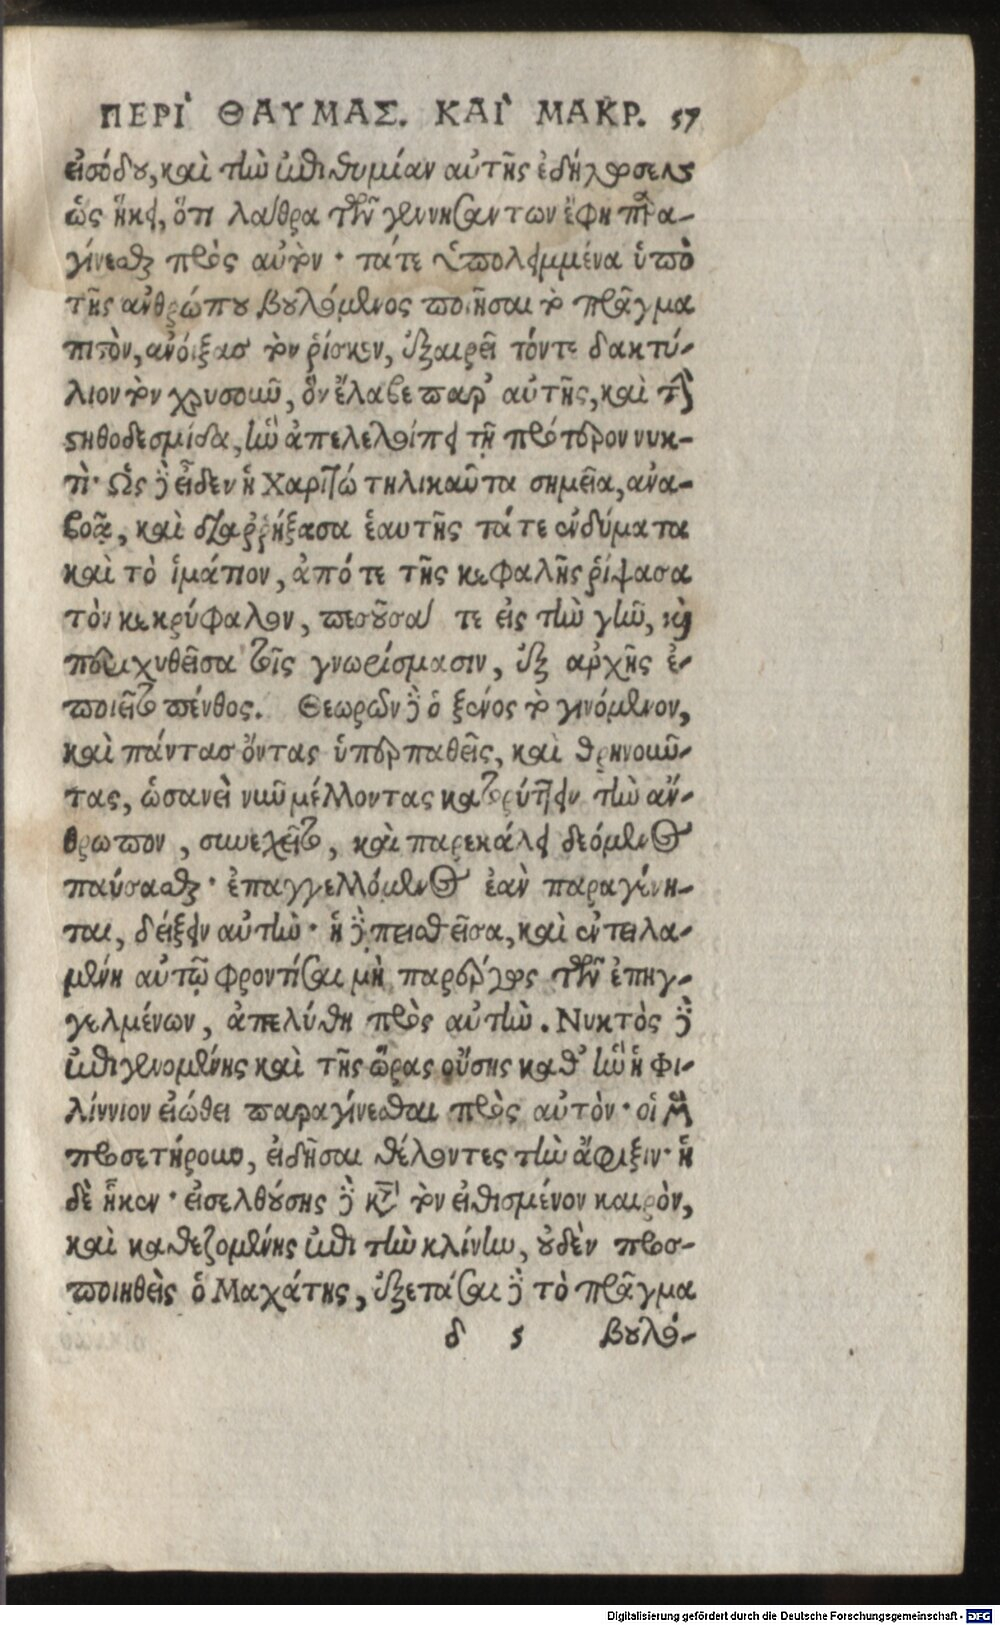 ΠΕΡΙ ΘΑΥΜΑΣ. ΚΑΙ ΜΑΚΡ. 57
εἰσόδου, καὶ τὴν ἐπιθυμίαν αὐτῆς ἐδήλωσεν
ὡς ἥκει, ὅτι λάθρα τῶν γεννησάντων ἔφη παρα-
γίνεσθαι πρὸς αὐτόν· τά τε ὑπολελειμμένα ὑπὸ
τῆς ἀνθρώπου βουλόμενος ποιῆσαι τὸ πρᾶγμα
πιστὸν, ἀνοίξας τὸν ῥίσκεν, ἐξαιρεῖ τόντε δακτύ-
λιον τὸν χρυσοῦν, ὃν ἔλαβε παρ’ αὐτῆς, καὶ τὴν
στηθοδεσμίδα, ἣν ἀπελελοίπει τῇ πρότερον νυκ-
τί· Ὡς δὲ εἶδεν ἡ Χαριτὼ τηλικαῦτα σημεῖα, ἀνα-
βοᾷ, καὶ διαῤῥήξασα ἑαυτῆς τά τε ἐνδύματα
καὶ τὸ ἱμάτιον, ἀπό τε τῆς κεφαλῆς ῥίψασα
τὸν κεκρύφαλον, πεσοῦσά τε εἰς τὴν γῆν, καὶ
περιχυθεῖσα τοῖς γνωρίσμασιν, ἐξ ἀρχῆς ἐ-
ποιεῖτο πένθος. Θεωρῶν δὲ ὁ ξένος τὸ γινόμενον,
καὶ πάντας ὄντας ὑπερπαθεῖς, καὶ θρηνοῦν-
τας, ὡσανεὶ νῦν μέλλοντας κατορύττειν τὴν ἄν-
θρωπον, συνεχεῖτο, καὶ παρεκάλει δεόμενος
παύσασθαι· ἐπαγγελλόμενος ἐὰν παραγένη-
ται, δείξειν αὐτήν· ἡ δὲ πεισθεῖσα, καὶ ἐντειλα-
μένη αὐτῷ φροντίσαι μὴ παρέργως τῶν ἐπηγ-
γελμένων, ἀπελύθη πρὸς αὐτήν. Νυκτὸς δὲ
ἐπιγενομένης καὶ τῆς ὥρας οὔσης καθ’ ἣν ἡ Φι-
λίννιον εἰώθει παραγίνεσθαι πρὸς αὐτόν· οἱ μὲν
προσετήρουν, εἰδῆσαι θέλοντες τὴν ἄφιξιν· ἡ
δὲ ἧκεν· εἰσελθούσης δὲ κατὰ τὸν εἰθισμένον καιρὸν,
καὶ καθεζομένης ἐπὶ τὴν κλίνην, οὐδὲν προσ-
ποιηθεὶς ὁ Μαχάτης, ἐξετάσαι δὲ τὸ πρᾶγμα
δ 5 βουλό-
Digitalisierung gefördert durch die Deutsche Forschungsgemeinschaft - DFG